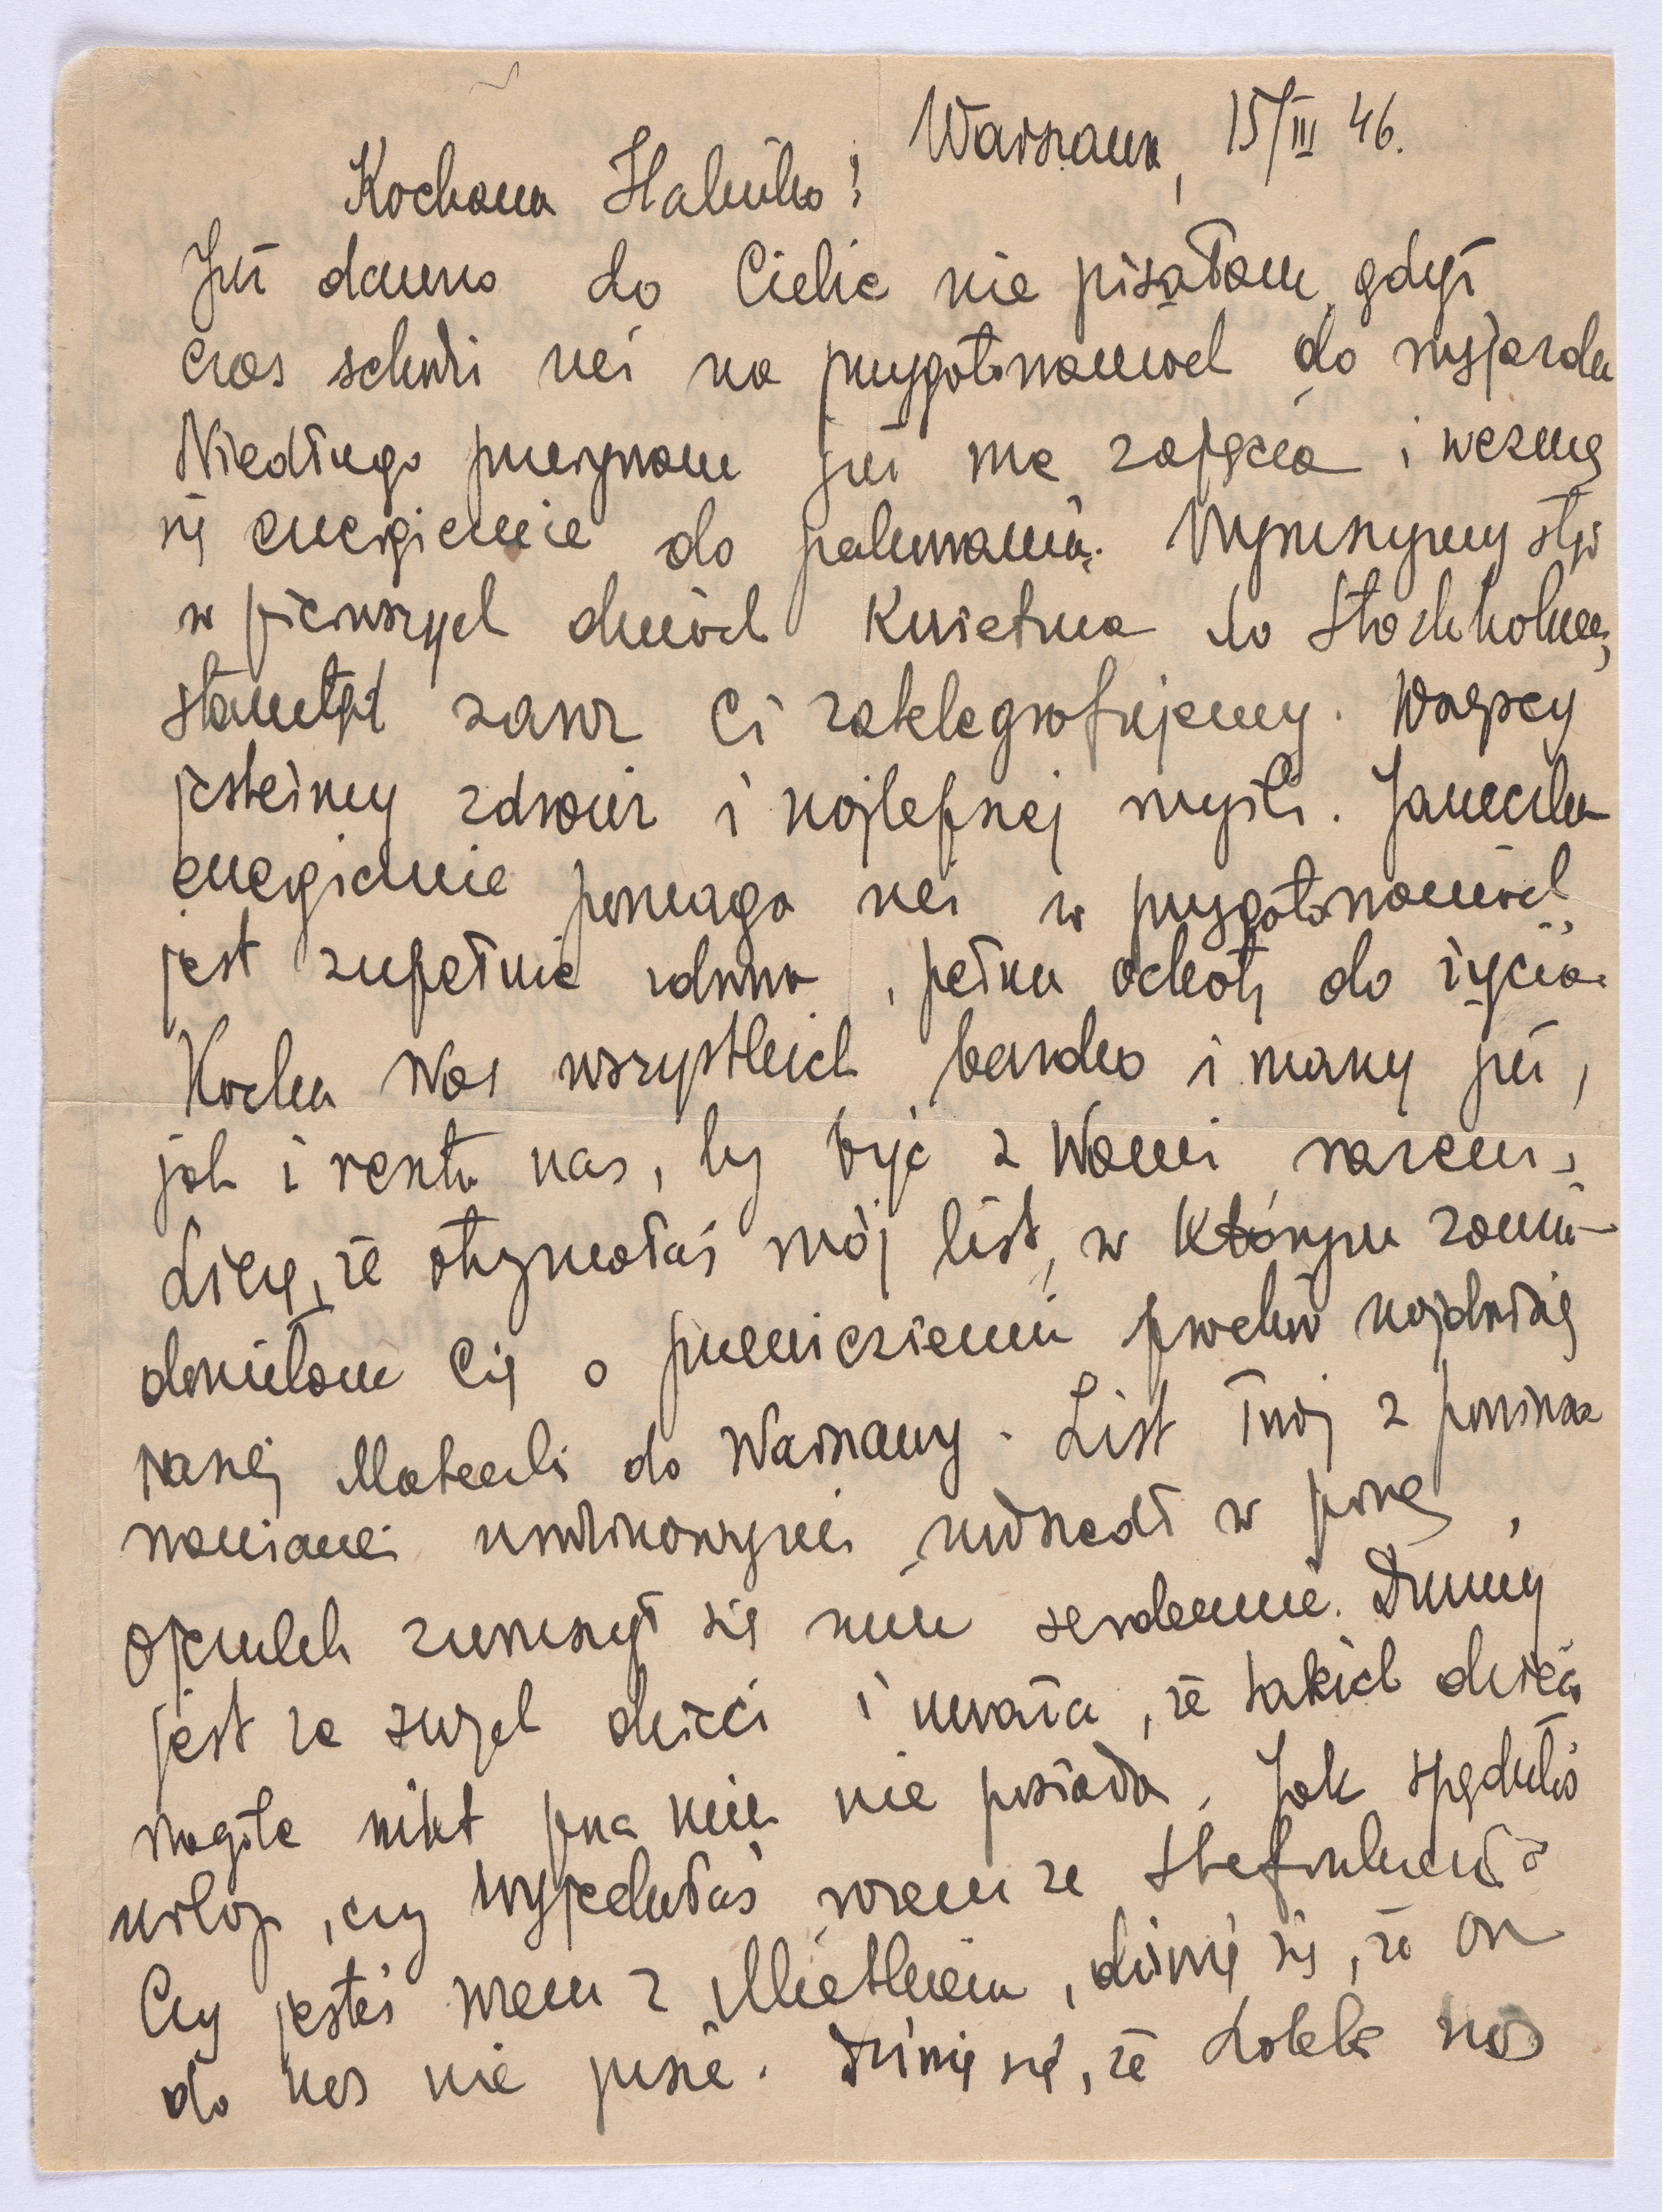 Warszawa, 15/III 46.
Kochana Halinko!
Już dawno do Ciebie nie pisałam, gdyż
czas schodzi mi na przygotowaniach do wyjazdu
Niedługo przerywam już me zajęcia i wezmę
się energicznie do pakowania. Wyruszymy stąd
w pierwszych dniach kwietnia do Stockholmu,
stamtąd zaraz Ci zatelegrafujemy. Wszyscy
jesteśmy zdrowi i najlepszej myśli. Janeczka
energicznie pomaga mi w przygotowaniach,
jest zupełnie zdrowa, pełna ochoty do życia.
Kocha Was wszystkich bardzo i marzy już,
jak i reszta nas, by być z Wami razem.
Liczę, że otrzymałaś mój list, w którym zawia-
domiłam Cię o przewiezieniu prochów najdroż
naszej Mateczki do Warszawy. List Twój z powinszo
waniami imieninowymi nadszedł w porę,
Ojczulek wzruszył się nim serdecznie. Dumny
jest ze swych dzieci i uważa, że takich dzieci
w ogóle nikt poza nim nie posiada. Jak spędziłaś
urlop, czy wyjechałaś razem ze Stefankiem?
Czy jesteś razem z Mietkiem, dziwię się, że On
do nas nie pisze. Dziwię się, że Lolek nas